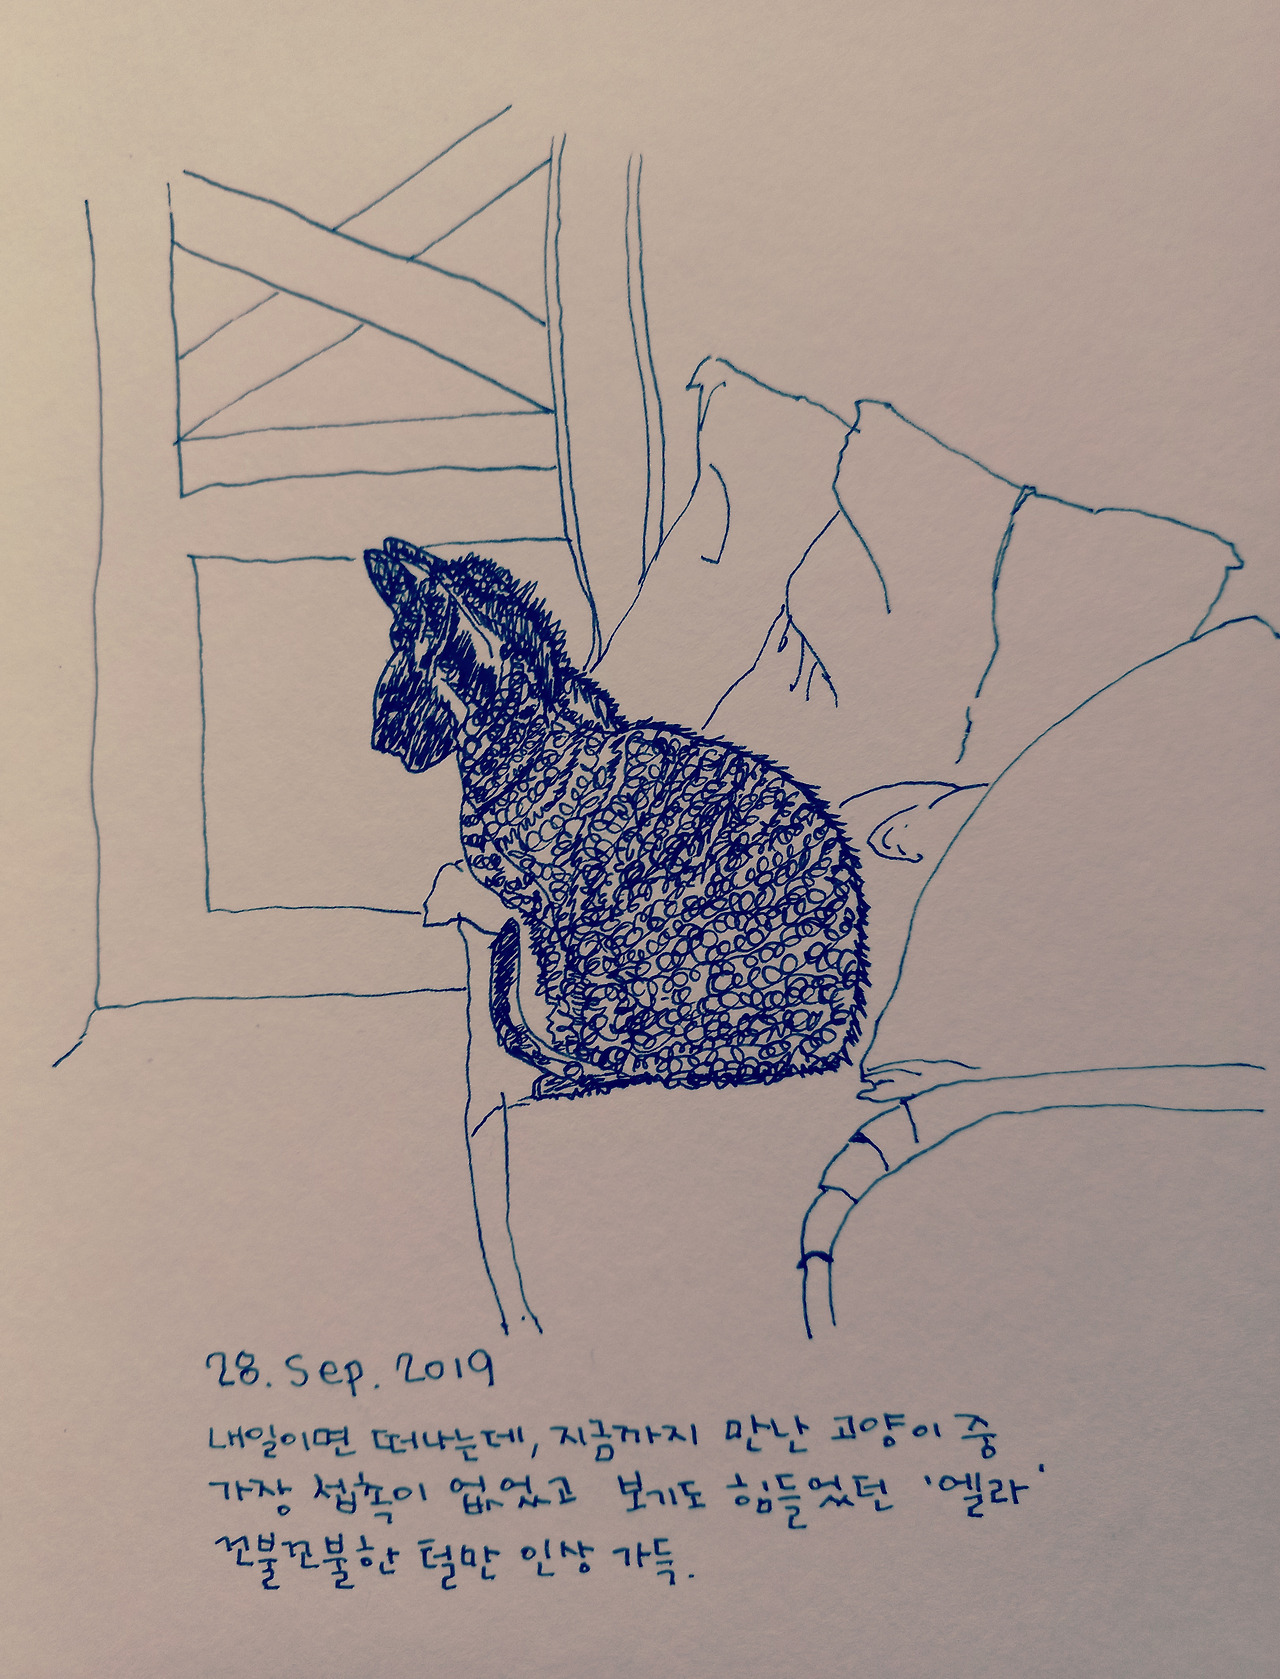 28. Sep. 2019
내일이면 떠나는데, 지금까지 만난 고양이 중
가장 접촉이 없었고 보기도 힘들었던 '엘라'
꼬불꼬불한 털만 인상 가득.